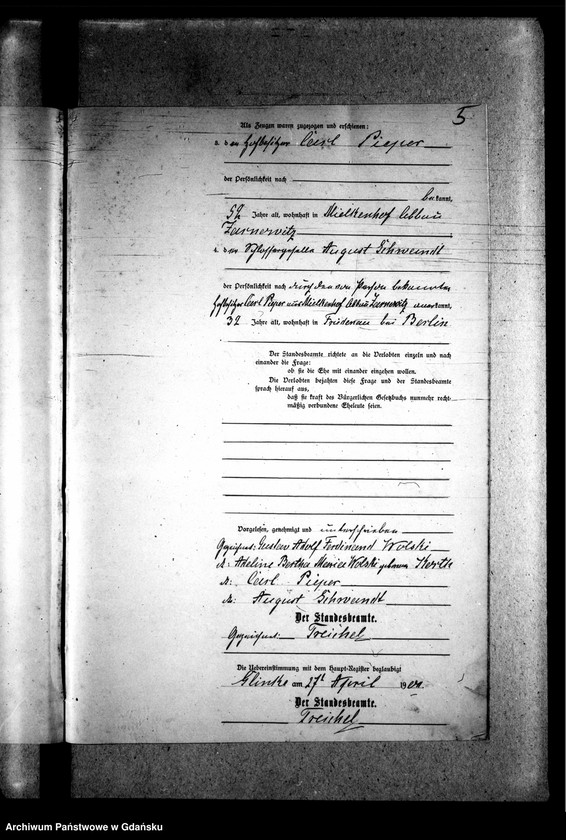 5
Als Zeugen waren zugezogen und erschienen:
1. der Hofbesitzer Carl Pieper
der Persönlichkeit nach
bekannt,
52 Jahre alt, wohnhaft in Mielkenhof Abbau
Zarnowitz
2. der Schlossergeselle August Schwandt
der Persönlichkeit nach durch den von Person bekannten
Hofbesitzer Carl Pieper aus Mielkenhof Abbau Zarnowitz anerkannt,
32 Jahre alt, wohnhaft in Friedenau bei Berlin
Der Standesbeamte richtete an die Verlobten einzeln und nach
einander die Frage:
ob sie die Ehe mit einander eingehen wollen.
Die Verlobten bejahten diese Frage und der Standesbeamte
sprach hierauf aus,
daß sie kraft des Bürgerlichen Gesetzbuchs nunmehr recht-
mäßig verbundene Eheleute seien.
Vorgelesen, genehmigt und unterschrieben
Gezeichnet: Gustav Adolf Ferdinand Wolski
Adeline Bertha Marie Wolski geborene
Carl Pieper
August Schwandt
Der Standesbeamte.
Gezeichnet: Treichel
Die Uebereinstimmung mit dem Haupt-Register beglaubigt
am 27t April 190
Der Standesbeamte.
Treichel
Archiwum Państwowe w Gdańsku